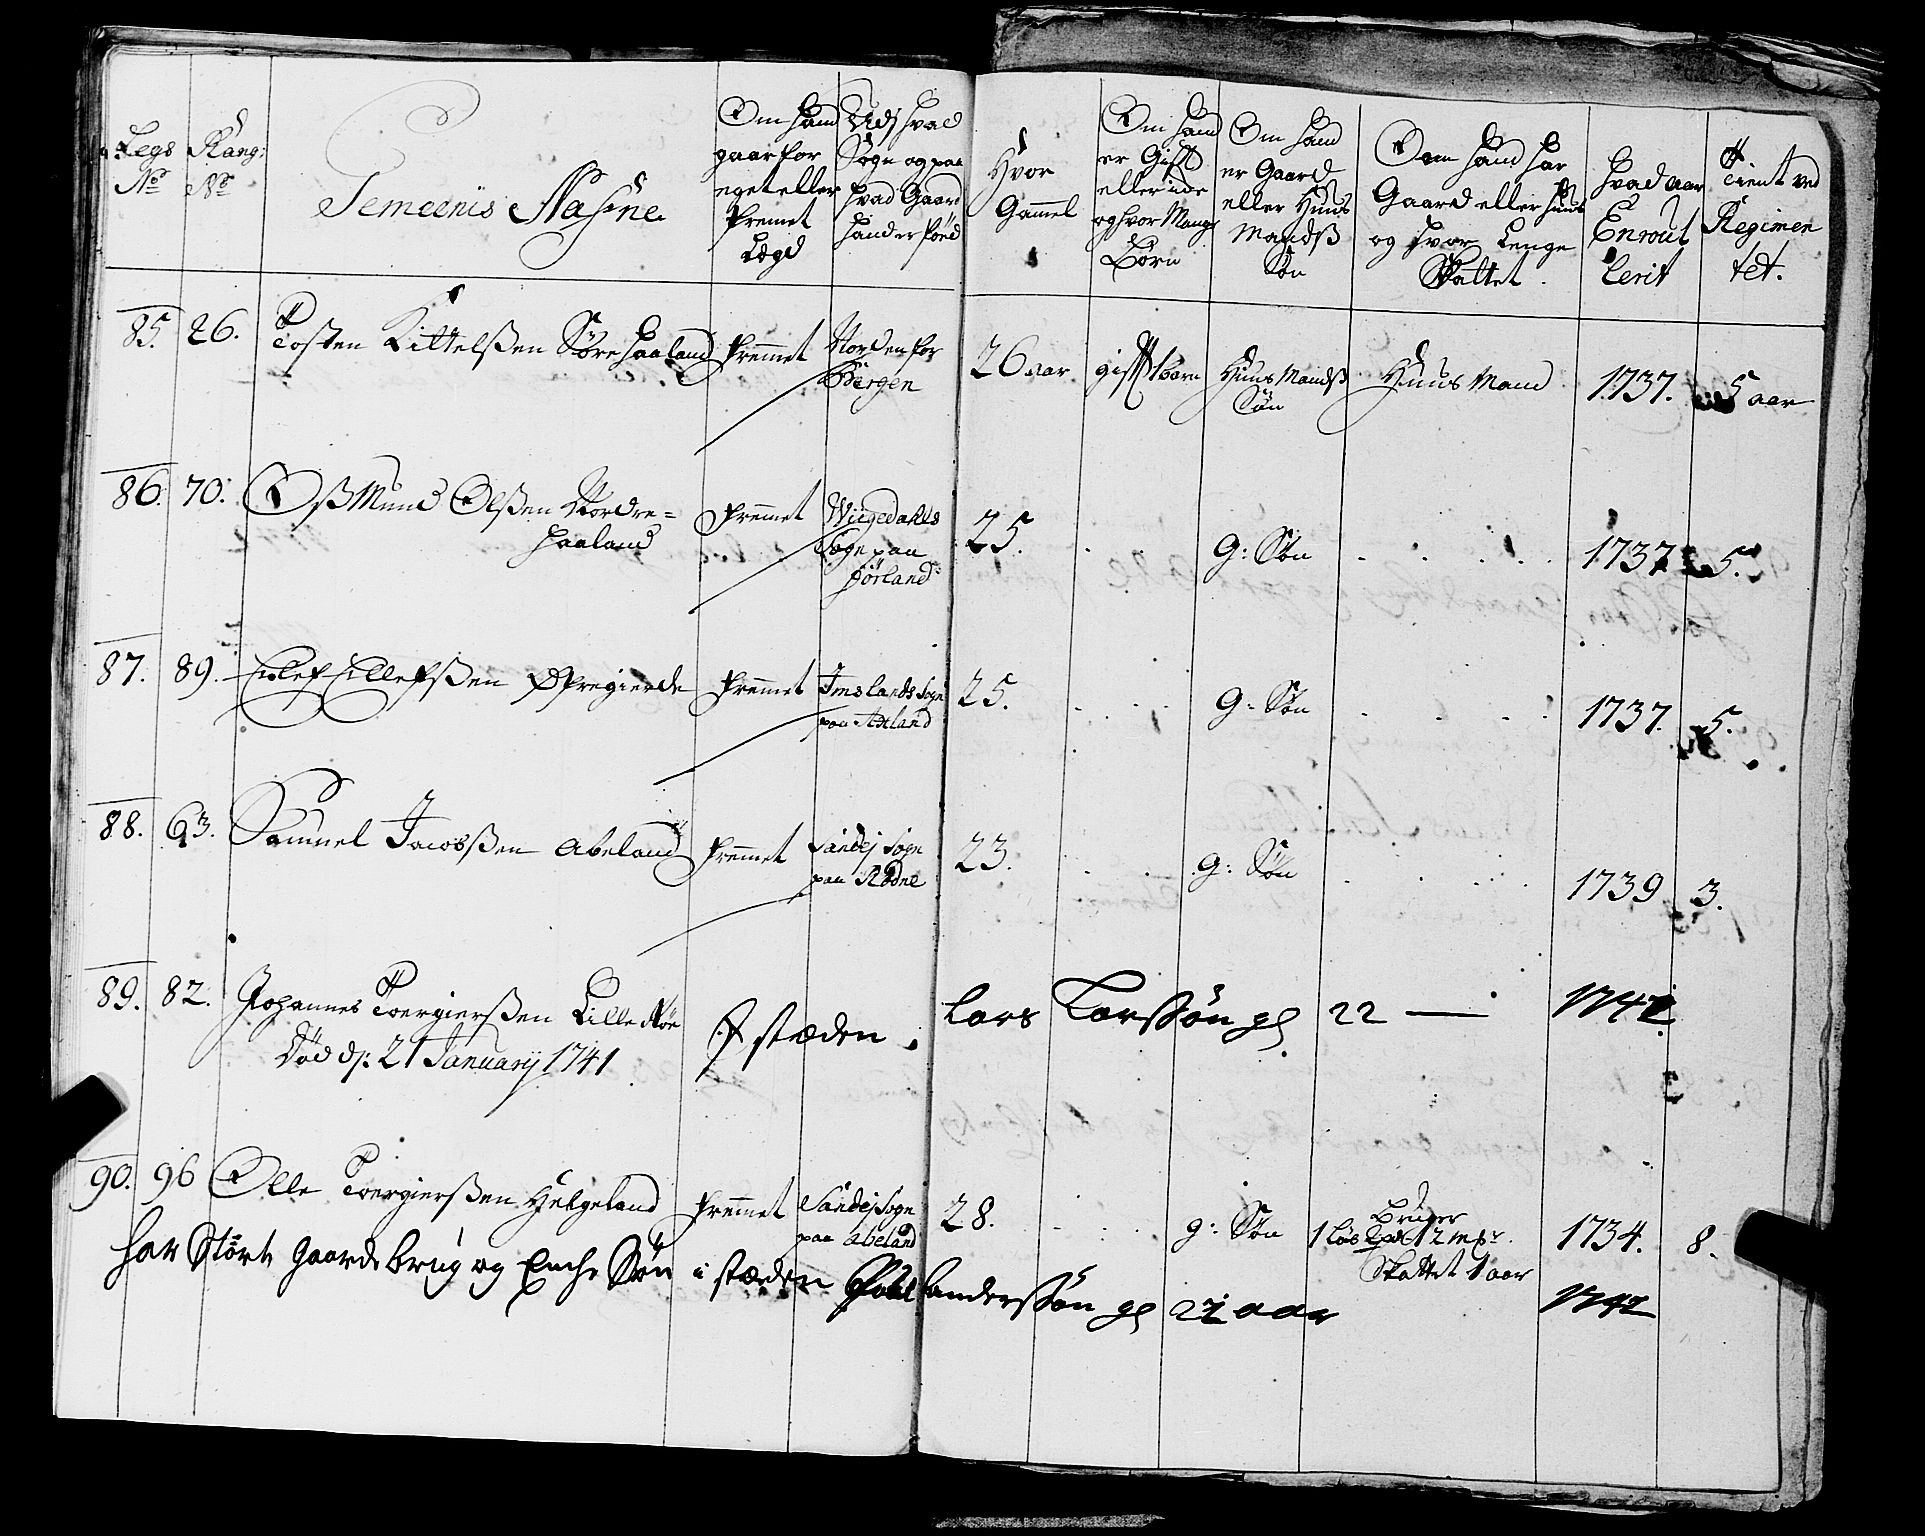 Legs No
Rang: No
Gemeenis Nafne
Om hand gaar for eget eller fremet Legd
Udj hvad Sogn og paa hvad Gaard hand er föed
Hvor Gammel
Om hand er Gift eller icke og hvor Mange Börn
Om hand er Gaard eller Huus Mandß Sön
Om hand har Gaard eller huus og hvor Lenge Skattet
hvad aar Enroulerit
Tient ved Regimentet.
85. 26. Tosten Kittelßen Söre haaland fremmet Norden for Bergen 26 aar gift 1 barn Huus Mandß Sön Huus Mand 1737. 5 aar
86. 70. Oßmund Olßen Nordre= haaland fremmet Wiigedahls Sogn paa hörland 25. G: Sön 1737 5.
87. 89. Ellef Ellefßen Öfregierde fremmet Imslands Sogn paa Axland 25. G: Sön 1737. 5.
88. 63. Samuel Jacobßen Abeland fremmet Sandej Sogn paa Rödne 23. G: Sön 1739 3.
89. 82. Johannes Toergierßen Lille Röe I stæden Lars Larssön gl 22 — 1742
Död d: 21 January 1741
90. 96 Olle Toergierßen Helgeland fremmet Sandej Sogn paa Abeland 28. g: Sön Bruger 1 Skattet 1 aar 1734. 8.
har Stört gaardebrug og Enche Sön i stæden anderssön gl 22 aar 1742